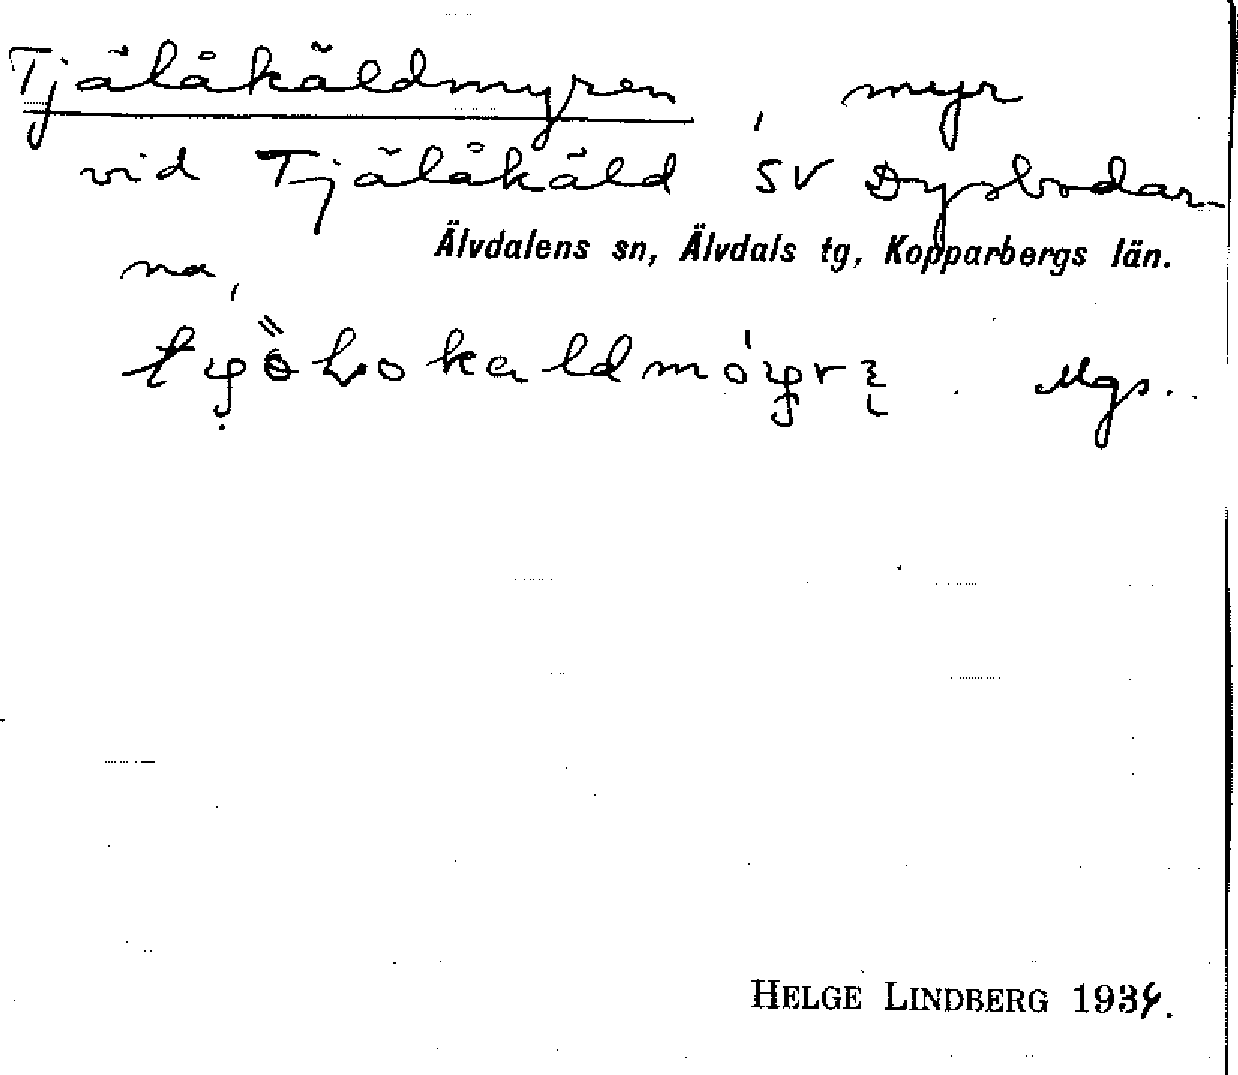 Tjälåkäldmyren, myr
vid Tjälåkäld SV Dysbodar-
na,
Älvdalens sn, Älvdals tg, Kopparbergs län.
Mgs.
HELGE LINDBERG 1934.